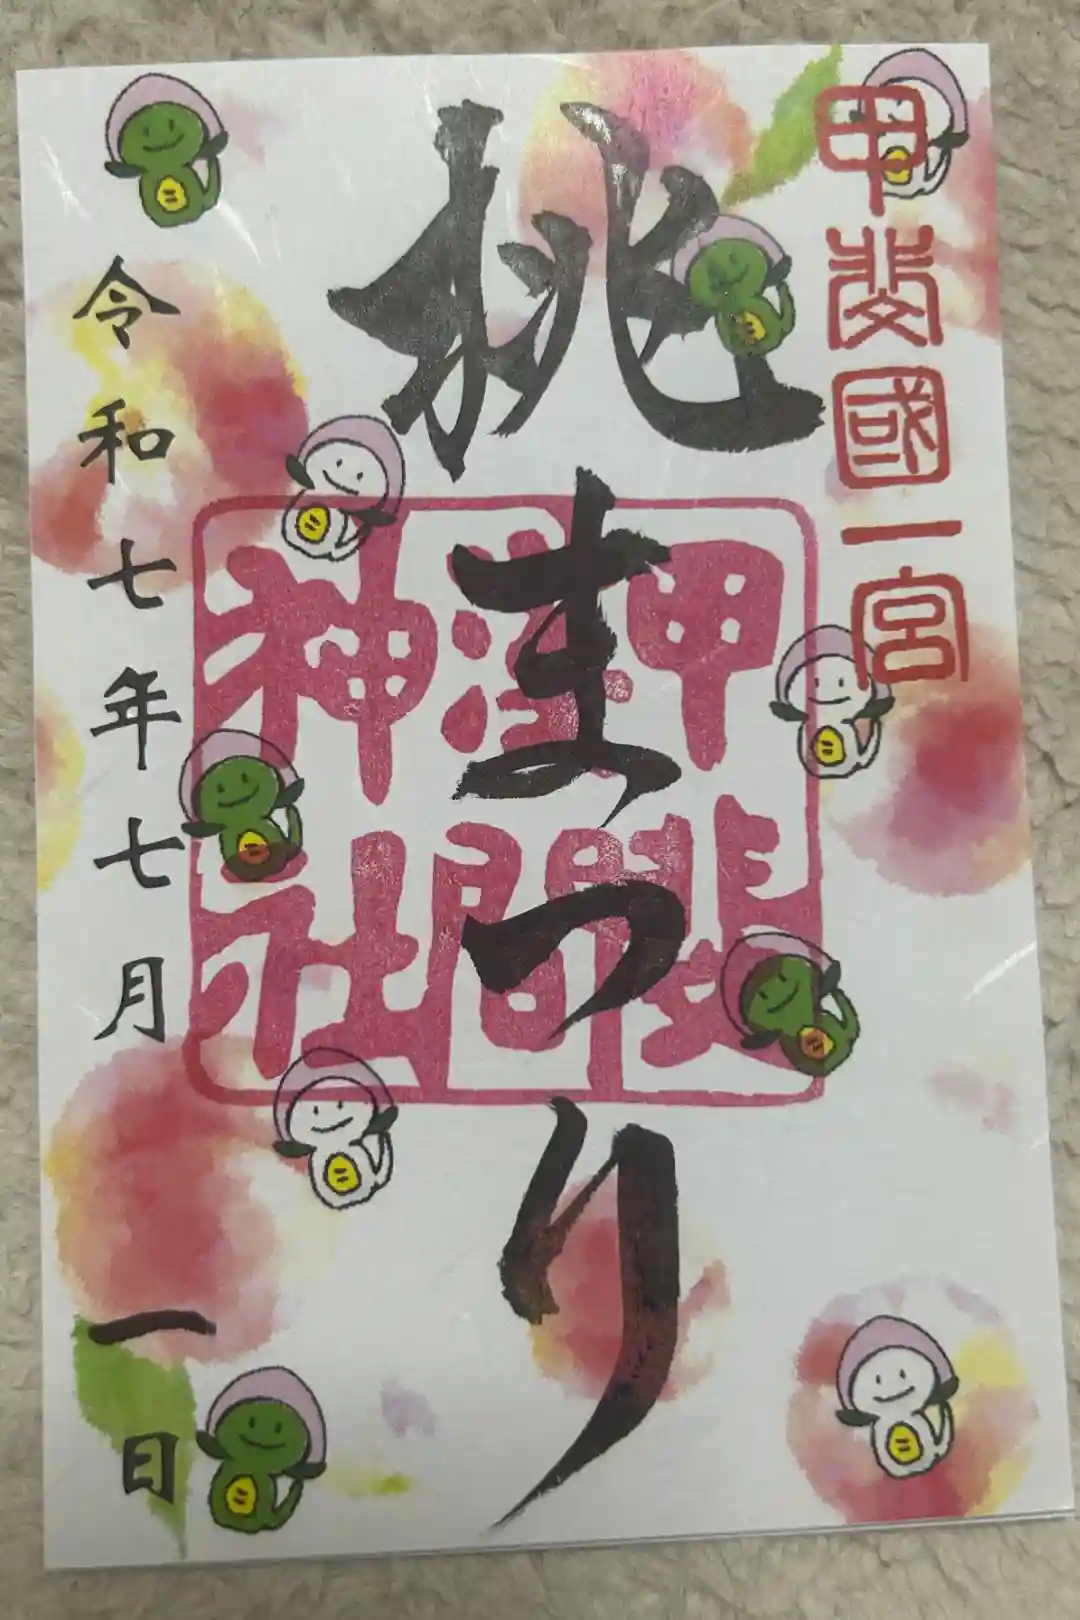 甲斐國一宮
桃まつり
甲斐
淺間
神社
令和七年七月一日